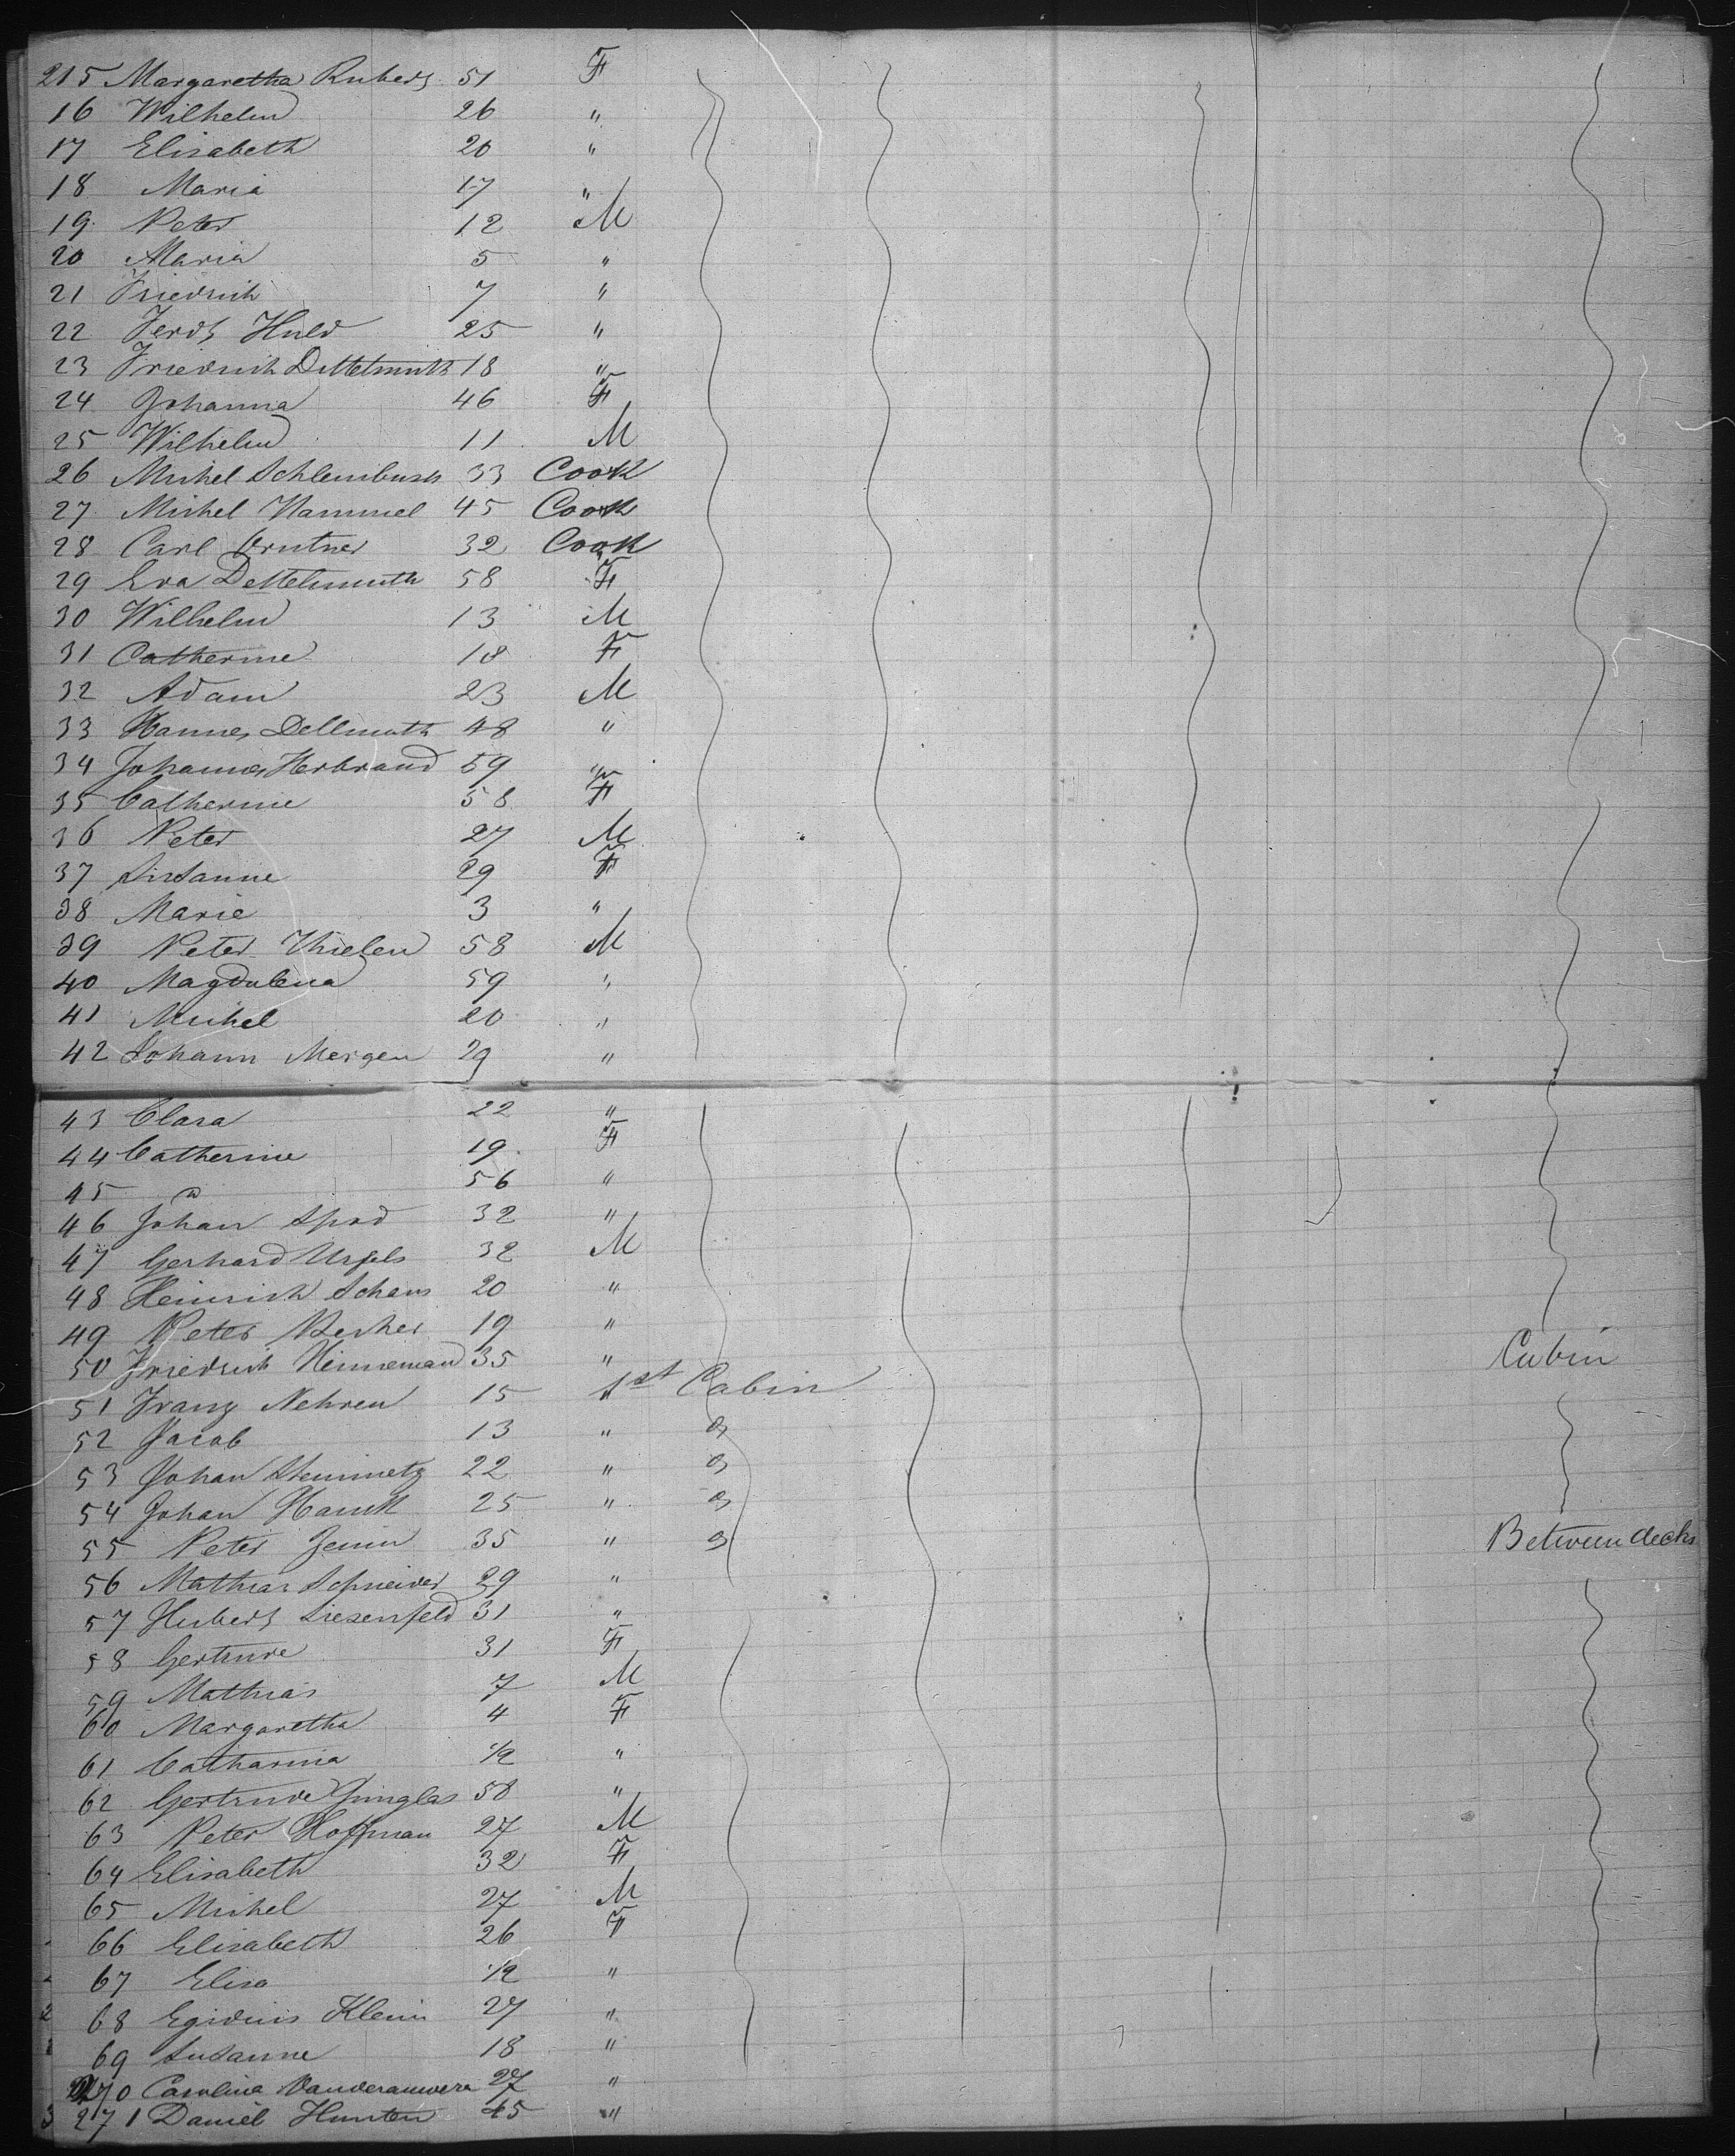 215 Margaretha Rubers 51 F
16 Wilhelm 26 "
17 Elisabeth 20 "
18 Maria 17 "
19 Peter 12 M
20 Maria 5 "
21 Friedrich 7 "
22 Ferd Huld 25 "
23 Friedrich Dettelmuth 18 "
24 Johanna 46 F
25 Wilhelm 11 M
26 Michel Schlembusch 33 Cook
27 Michel Hammel 45 Cook
28 Carl 32 Cook
29 Eva Dettelmuth 58 F
30 Wilhelm 13 M
31 Catherine 18 F
32 Adam 23 M
33 Hannes Dellmuth 48 "
34 Johannes Herbrand 59 "
35 Catherine 58 F
36 Peter 27 M
37 Susanne 29 F
38 Marie 3 "
39 Peter Thielen 58 M
40 Magdalena 59 "
41 Michel 20 "
42 Johann Mergen 29 "
43 Clara 22 "
44 Catherine 19 F
45 " 56 "
46 Johan Spod 32 "
47 Gerhard Ursfels 32 M
48 Heinrich Schaus 20 "
49 Peter Becher 19 "
50 Friedrich Hinneman 35 " Cabin
51 Franz Nehren 15 1st Cabin
52 Jacob 13 "
53 Johan Steinmetz 22 "
54 Johan 25 "
55 Peter 35 " Between decks
56 Mathias Schneider 29 "
57 Hubert Liesenfeld 31 "
58 Gertrude 31 F
59 Mathias 7 M
60 Margaretha 4 F
61 Catharina 1/2 "
62 Gertrude Junglas 58 "
63 Peter Hoffman 27 M
64 Elisabeth 32 F
65 Michel 27 M
66 Elisabeth 26 F
67 Elisa 1/2 "
68 Egidius Klein 27 "
69 Susanne 18 "
270 Carolina Vanderauwera 27 "
271 Daniel Hunten 45 "